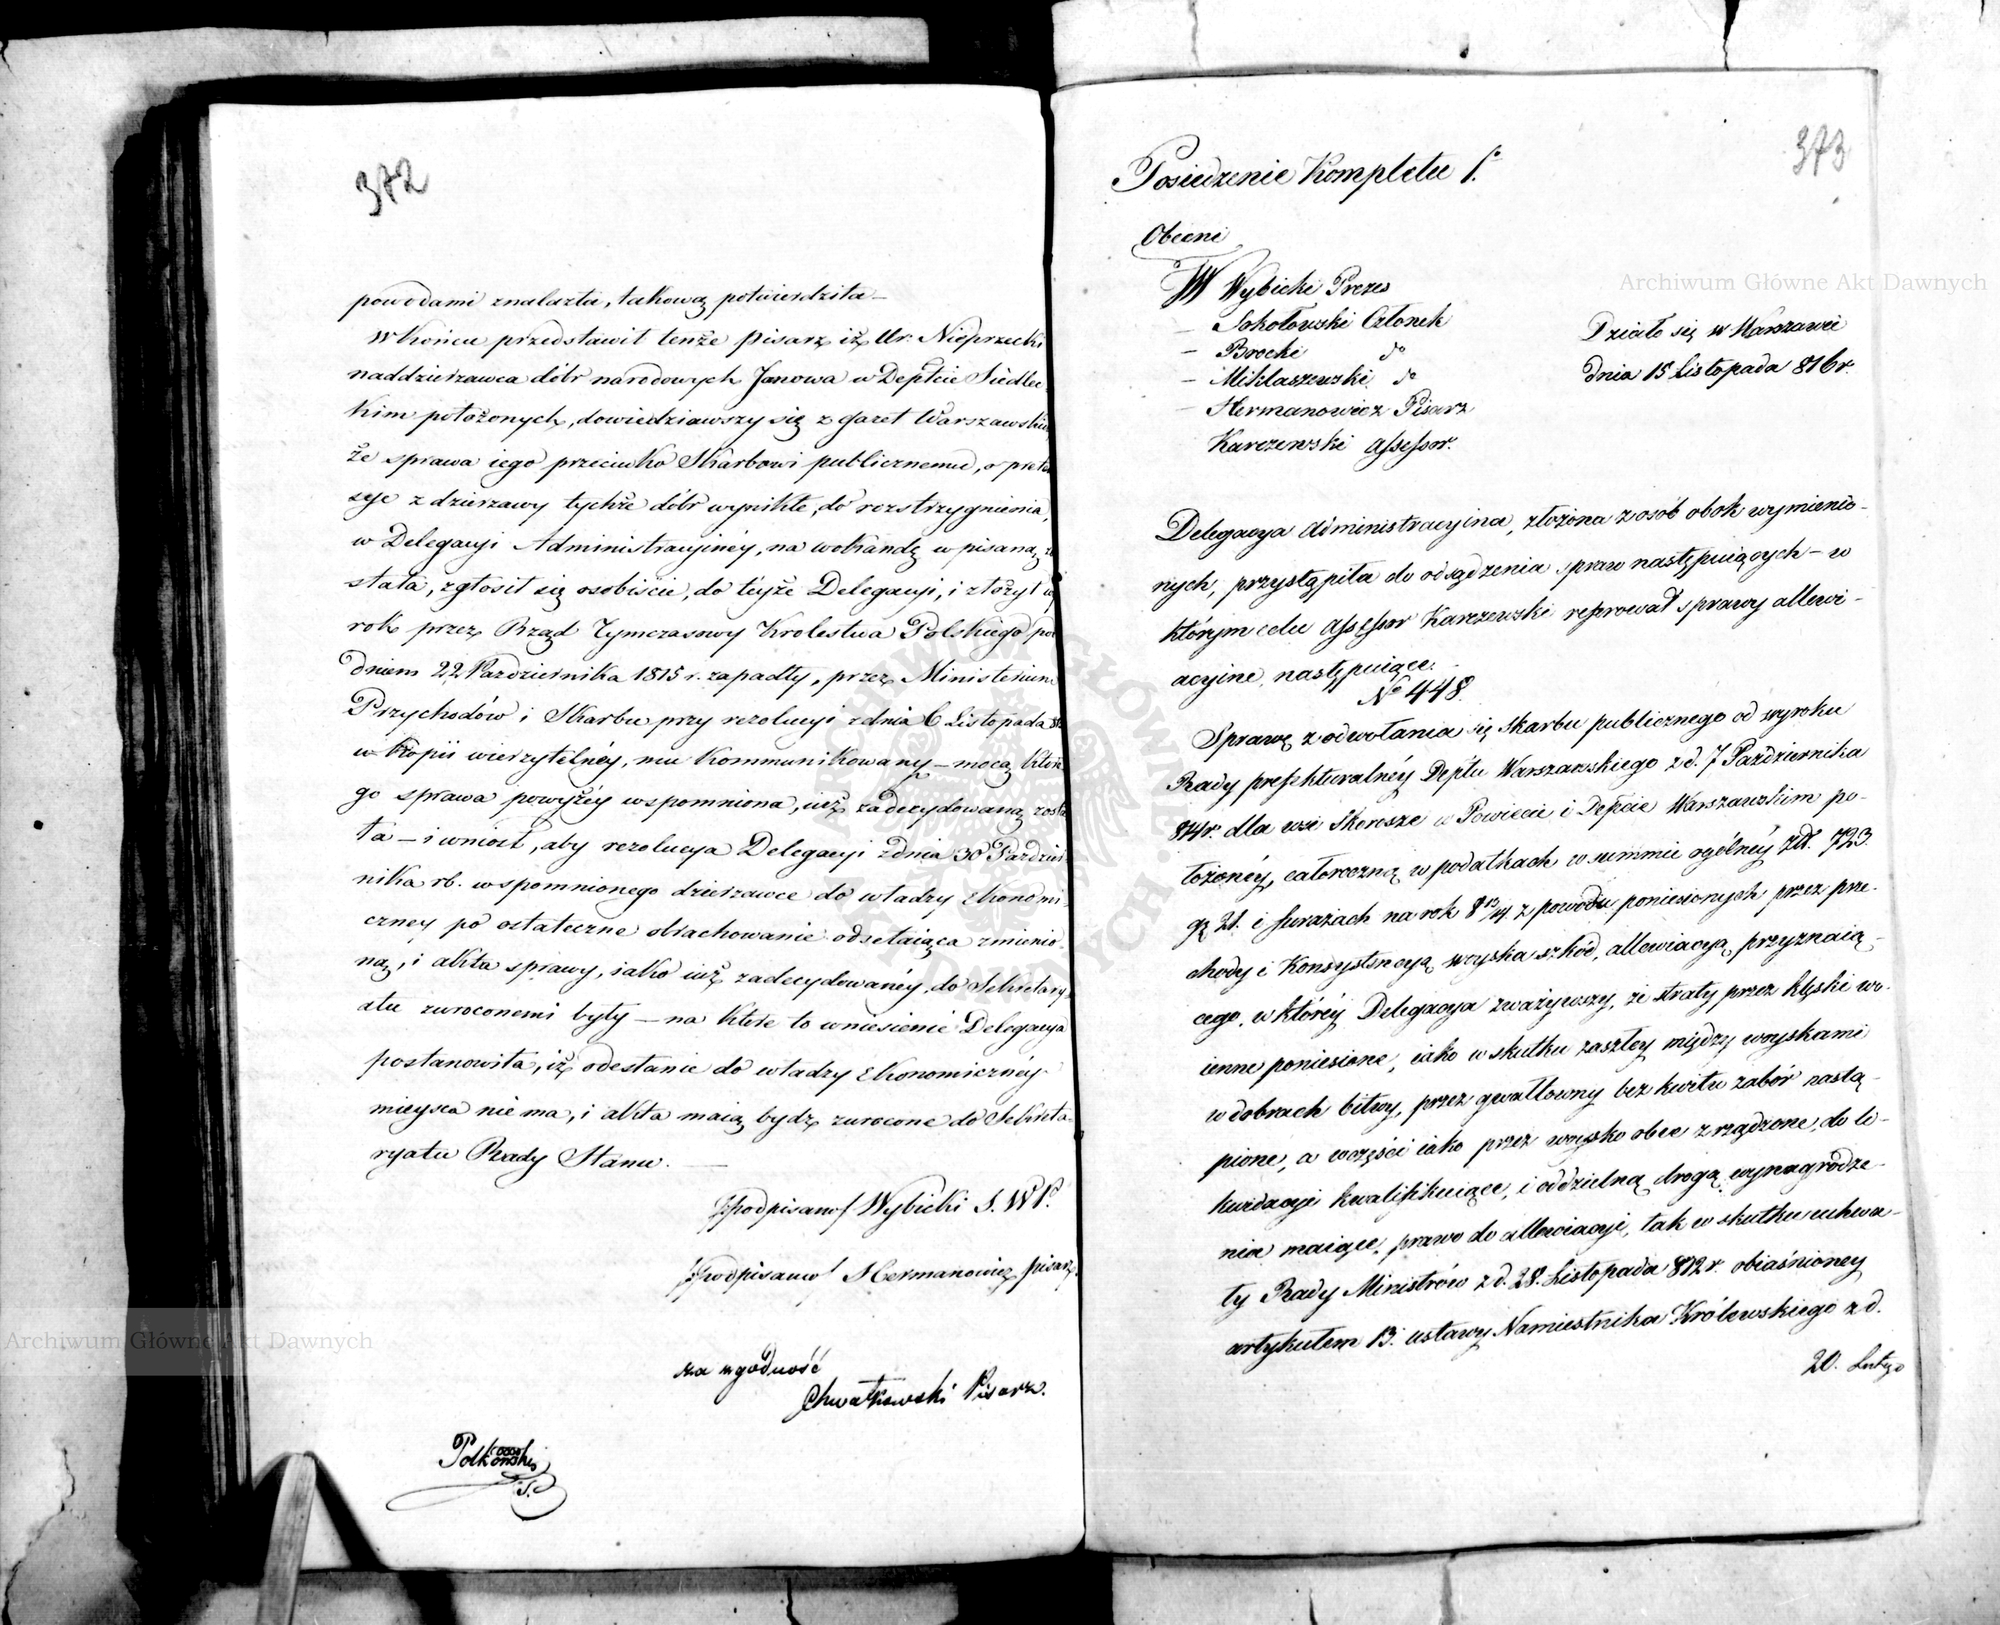 372
powodami znalazła, takową potwierdziła —
W końcu przedstawił tenże pisarz iż Ur: Nieprzecki
naddzierżawca dóbr narodowych Janowa w Depcie Siedlec
kim położonych, dowiedziawszy się z gazet Warszawskich
że sprawa iego przeciwko Skarbowi publicznemu, o preten
sye z dzierżawy tychże dóbr wynikłe, do rozstrzygnienia,
w Delegacyi Administracyinéy, na wokandę wpisaną zo
stała, zgłosił się osobiście, do téyże Delegacyi, i złożył wy
rok przez Rząd Tymczasowy Krolestwa Polskiego pod
dniem 22 Pazdziernika 1815 r. zapadły, przez Ministerium
Przychodów i Skarbu przy rezolucyi z dnia 6 Listopada 815
w kopii wierzytelnéy, mu kommunikowany — mocą które
go sprawa powyżéy wspomniona, iuż zadecydowaną zosta
ła — i wniósł, aby rezolucya Delegacyi z dnia 30 Pazdzier
nika rb. wspomnionego dzierzawce do władzy Ekonomi
czney po ostateczne obrachowanie odsełaiąca zmienio
ną, i akta sprawy, iako iuż zadecydowanéy, do Sekretary
atu zwroconemi były — na które to wniesienie Delegacya
postanowiła, iż odesłanie do władzy Ekonomicznéy
mieysca nie ma, i akta maią bydź zwrocone do Sekreta-
ryatu Rady Stanu. —
(podpisano) Wybicki S. W P.
(podpisano) Hermanowicz pisarz.
za zgodność
Chwałkowski Pisarz.
373
Posiedzenie Kompletu 1.º
Obecni
JW Wybicki Prezes
— Sokołowski Członek
— Brocki dº
— Miklaszewski dº
— Hermanowicz Pisarz
Karczewski Assessor.
Działo się w Warszawie
dnia 15 Listopada 816 r.
Delegacya Administracyina, złożona z osób obok wymienio-
nych, przystąpiła do odsądzenia spraw następuiących — w
którym celu Assessor Karczewski referował sprawy allewi-
acyine następuiące.
Nº 448.
Sprawę z odwołania się skarbu publicznego od wyroku
Rady prefekturalnéy Deptu Warszawskiego z d. 7 Października
814 r. dla wsi Skorosze w Powiecie i Depcie Warszawskim po-
łożonéy, całoroczną w podatkach w summie ogólnéy złł. 723.
gr 21. i furażach na rok 8 13/14 z powodu poniesionych przez prze-
chody i Konsystencyą woyska szkód, allewiacyą przyznaią-
cego, w któréy Delegacya zważywszy, że straty przez klęski wo-
ienne poniesione, iako w skutku zaszłey między woyskami
w dobrach bitwy, przez gwałtowny bez kwitu zabór nastą-
pione, a w części iako przez woysko obce zrządzone, do li-
kwidacyi kwalifikuiące, i oddzielną drogą wynagrodze-
nia maiące, prawo do allewiacyi, tak w skutku uchwa-
ły Rady Ministrów z d. 28. Listopada 812 r. obiaśnioney
artykułem 13. ustawy Namiestnika Królewskiego z d.
20. Lutego